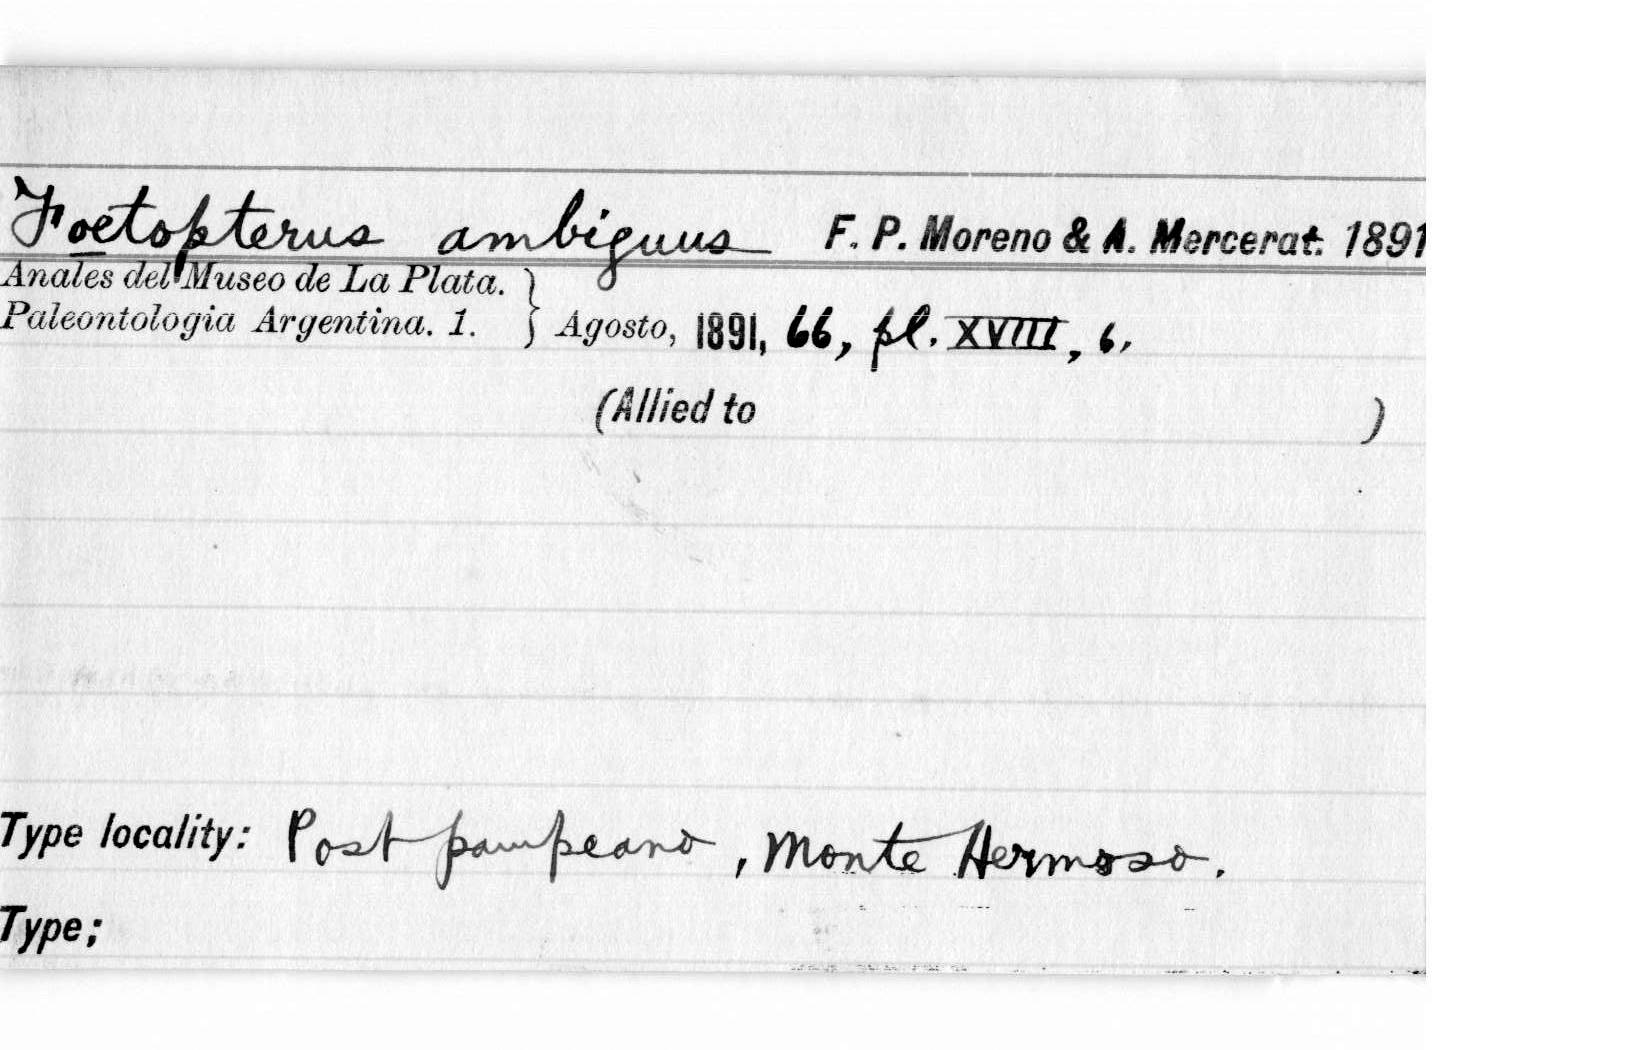 Foetopterus ambiguus F. P. Moreno & A. Mercerat. 1891
Anales del Museo de La Plata.
Paleontologia Argentina. 1. } Agosto, 1891, 66, pl. XVIII, 6.
(Allied to )
Type locality: Post pampeano, Monte Hermoso.
Type;